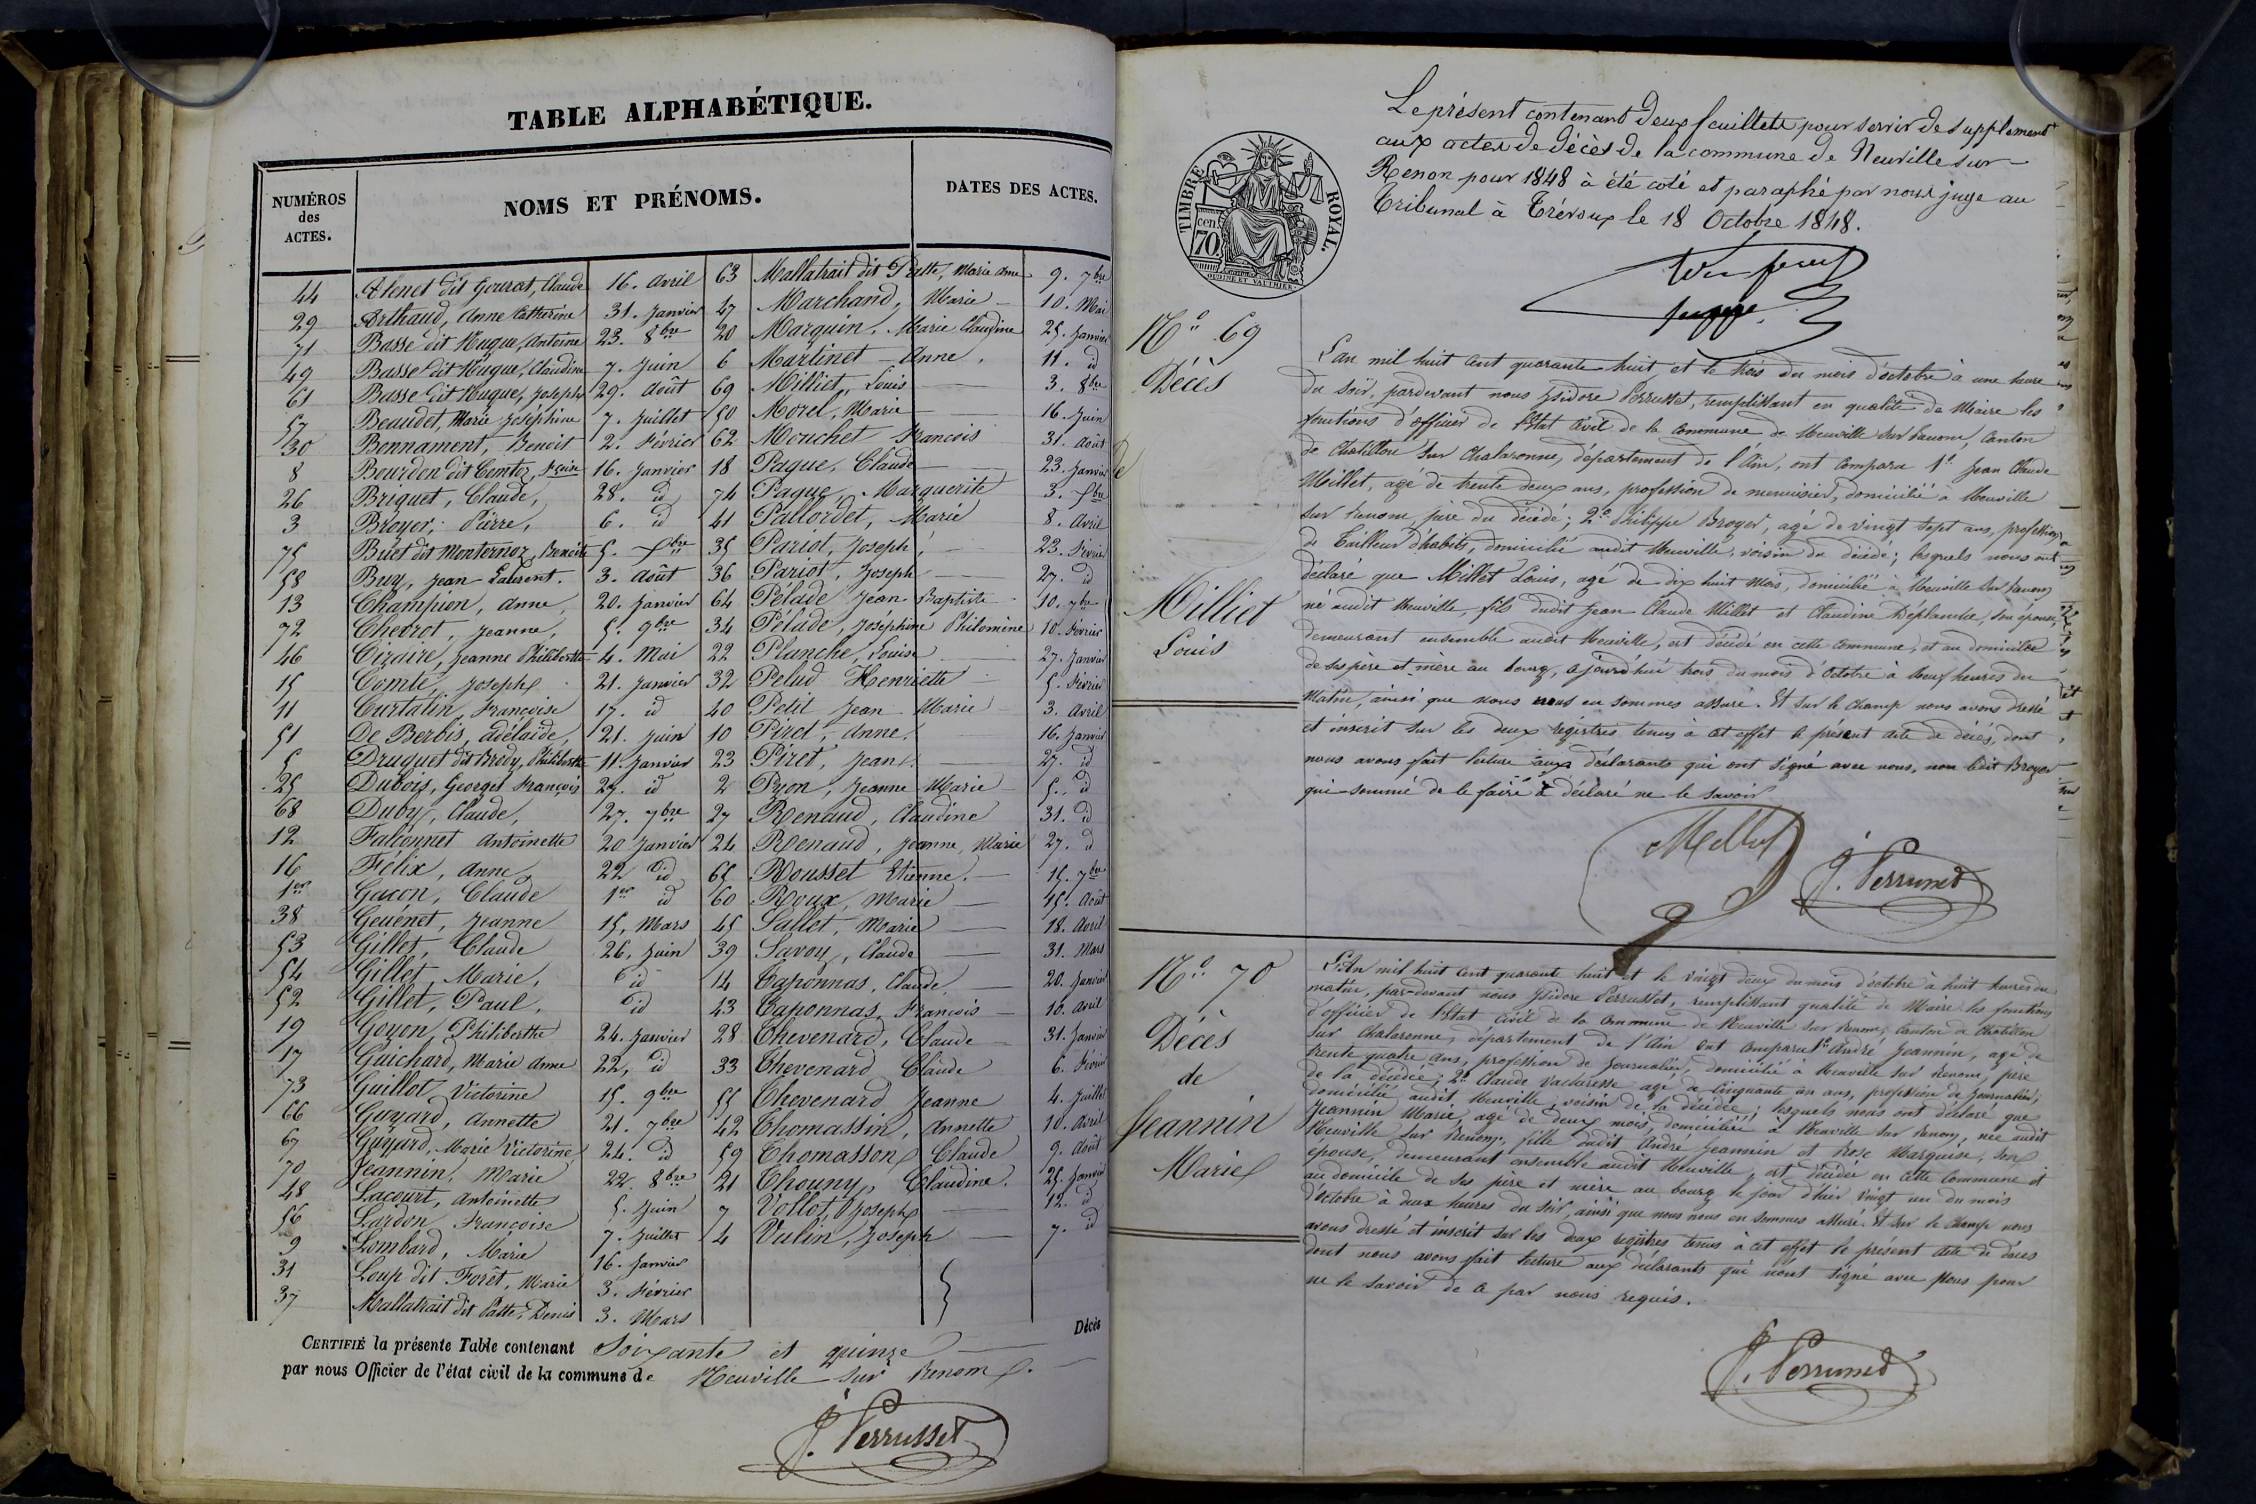 TABLE ALPHABÉTIQUE.
NUMÉROS
des
ACTES.
NOMS ET PRÉNOMS.
DATES DES ACTES.
44 Alenet dit Gourat, Claude 16. Avril
29 Arthaud, Anne Catherine 31. Janvier
71 Basse dit Hugue, Antoine 23. 8bre
49 Basse dit Hugue, Claudine 7. Juin
61 Basse dit Hugue, Joseph 29. Août
57 Beaudet, Marie Joséphine 7. Juillet
30 Bonnament, Benoit 2. Février
8 Bourdon dit Comtoz, 16. Janvier
26 Briquet, Claude, 28. id
3 Broyer, Pierre, 6. id
75 Buet dit Monternoz, Benoite
58 Buy, Jean Laurent. 3. Août
13 Champion, Anne, 20. Janvier
72 Chevrot, Jeanne, 5. 9bre
46 Cizaire, Jeanne Philiberte 4. Mai
15 Comte, Joseph 21. Janvier
11 Curtalin, Françoise 17. id
51 De Berbis, Adélaïde, 21. Juin
5 Druguet dit Brody, Philiberte 11. Janvier
25 Dubois, Georges François 27. id
68 Duby, Claude, 27. 7bre
12 Falconnet Antoinette 20 Janvier
16 Félix, Anne, 22 id
1er Gacon, Claude 1er id
38 Geuenet, Jeanne 15, Mars
53 Gillet, Claude 26, Juin
54 Gillet, Marie, id
52 Gillet, Paul, id
19 Goyon, Philiberthe 24. Janvier
17 Guichard, Marie Anne 22, id
73 Guillot Victorine 15. 9bre
66 Guyard, Annette 21. 7bre
67 Guyard, Marie Victorine 24. id
70 Jeannin, Marie 22. 8bre
48 Lacourt, Antoinette 5. Juin
56 Lardon, Françoise 7. Juillet
9 Lombard, Marie 16. Janvier
31 Loup dit Forêt, Marie 3. Février
37 Mallatrait dit Patte, Denis 3. Mars
63 Mallatrait dit Patte, Marie Anne 9. 7bre
47 Marchand, Marie 10. Mai
20 Marquin, Marie Claudine 25. Janvier
6 Martinet Anne. 11. id
69 Milliet, Louis 3. 8bre
50 Morel, Marie 16. Juin
62 Mouchet François 31. Août
18 Paque, Claude 23. Janvier
74 Paque, Marguerite 3.
41 Pallordet, Marie 8. Avril
35 Pariot, Joseph, 23. Février
36 Pariot, Joseph 27. id
64 Pélade Jean Baptiste 10. 7bre
34 Pélade, Joséphine Philomène 10. Février
22 Planche, Louise 27. Janvier
32 Pelud Henriette 5. Février
40 Petit Jean Marie 3. Avril
10 Piret, Anne. 16. Janvier
23 Piret, Jean. 27. id
2 Pyon, Jeanne Marie 5. id
27 Renaud, Claudine 31. id
24 Renaud, Jeanne, Marie 27. id
65 Rousset Etienne. 15. 7bre
60 Roux, Marie 15. Août
45 Sallet, Marie 18. Avril
39 Savoy, Claude 31. Mars
14 Taponnas, Claude. 20. Janvier
43 Taponnas, François 10. Avril
28 Thevenard, Claude 31. Janvier
33 Thevenard Claude 6. Février
55 Thevenard Jeanne 4. Juillet
42 Thomassin, Annette 10. Avril
59 Thomasson Claude 9. Août
21 Thouny, Claudine. 25. Janvier
7 Vollot, Joseph 12. id
4 Vulin, Joseph 7. id
CERTIFIÉ la présente Table contenant Soixante et quinze Décès
par nous Officier de l'état civil de la commune de Neuville sur Renom.
J. Perrusset
Le présent contenant deux feuillets pour servir de supplément
aux actes de décès de la commune de Neuville sur
Renon pour 1848 à été coté et paraphé par nous juge au
Tribunal à Trévoux le 18 Octobre 1848.
TIMBRE ROYAL.
cen.
70.
N° 69
Décès
de
Milliet
Louis
L'an mil huit cent quarante huit et le trois du mois d'octobre à une heure
du soir, pardevant nous Ysidore Perrusset, remplissant en qualité de Maire les
fonctions d'officier de l'Etat Civil de la Commune de Neuville sur Renom, Canton
de Chatillon sur Chalaronne, département de l'Ain, ont Comparu 1° Jean Claude
Millet, agé de trente deux ans, profession de menuisier, domicilié à Neuville
sur Renom père du décédé; 2° Philippe Broyer, agé de vingt sept ans, profession
de Tailleur d'habits, domicilié audit Neuville, voisin du décédé; lesquels nous ont
déclaré que Millet Louis, agé de dix huit mois, domicilié à Neuville sur Renom
né audit Neuville, fils dudit Jean Claude Millet et Claudine Déplanche, son épouse,
demeurant ensemble audit Neuville, est décédé en cette Commune, et au domicile
de ses père et mère au bourg, ajourd'hui trois du mois d'octobre à neuf heures du
matin, ainsi que nous nous en sommes assuré. Et sur le champ nous avons dressé
et inscrit sur les deux régistres tenus à cet effet le présent acte de décès, dont
nous avons fait lecture aux déclarants qui ont signé avec nous, non ledit Broyer
qui sommé de le faire à déclaré ne le savoir
Millet
J. Perrusset
N° 70
Décès
de
Jeannin
Marie
L'An mil huit cent quarante huit et le vingt deux du mois d'octobre à huit heures du
matin, par-devant nous Ysidore Perrusset, remplissant qualité de Maire les fonctions
d'officier de l'Etat Civil de la Commune de Neuville sur Renom, Canton de Chatillon
sur Chalaronne, département de l'Ain ont comparu 1° André Jeannin, agé de
trente quatre ans, profession de Journalier, domicilié à Neuville sur Renom, père
de la décédée; 2° Claude Vacheresse agé de Cinquante un ans, profession de Journalier,
domicilié audit Neuville, voisin de la décédée; lesquels nous ont déclaré que
Jeannin Marie, agé de deux mois, domiciliée à Neuville sur Renom, née audit
Neuville sur Renom, fille dudit André Jeannin et Rose Marguise, son
épouse, demeurant ensemble audit Neuville, est décédée en cette Commune et
au domicile de ses père et mère au bourg le jour d'hier vingt un du mois
d'octobre à deux heures du soir, ainsi que nous nous en sommes assuré. Et sur le champ nous
avons dressé et inscrit sur les deux registres tenus à cet effet le présent acte de décès
dont nous avons fait lecture aux déclarants qui n'ont signé avec nous pour
ne le savoir de ce par nous requis.
J. Perrusset